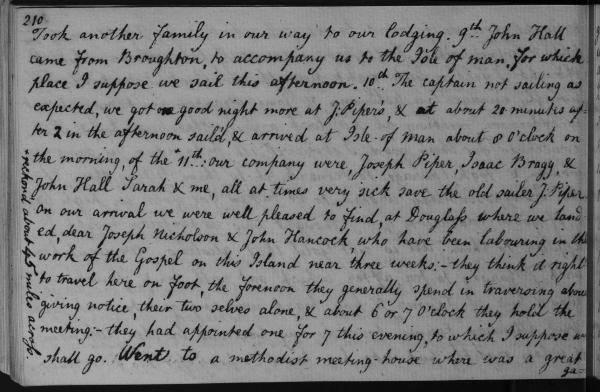 210
Took another family in our way to our lodging. 9th. John Hall
came from Broughton, to accompany us to the Isle of man, for which
place I suppose we sail this afternoon. 10th. The captain not sailing as
expected, we got one good night more at J: Piper's, & at about 20 minutes af-
ter 2 in the afternoon sail'd, & arrived at Isle-of man about 8 O'clock on
the morning, of the *11th: our company were, Joseph Piper, Isaac Bragg, &
John Hall Sarah & me, all at times very sick save the old sailer J: Piper
on our arrival we were well pleased to find, at Douglass where we land
ed, dear Joseph Nicholson & John Hancock who have been labouring in the
work of the Gospel on this Island near three weeks:- they think it right
to travel here on foot, the forenoon they generally spend in traversing about
giving notice, their two selves alone, & about 6 or 7 O'clock they hold the
meeting:- they had appointed one for 7 this evening, to which I suppose we
shall go. Went to a methodist meeting-house where was a great
ga=
*reckon'd about miles across.